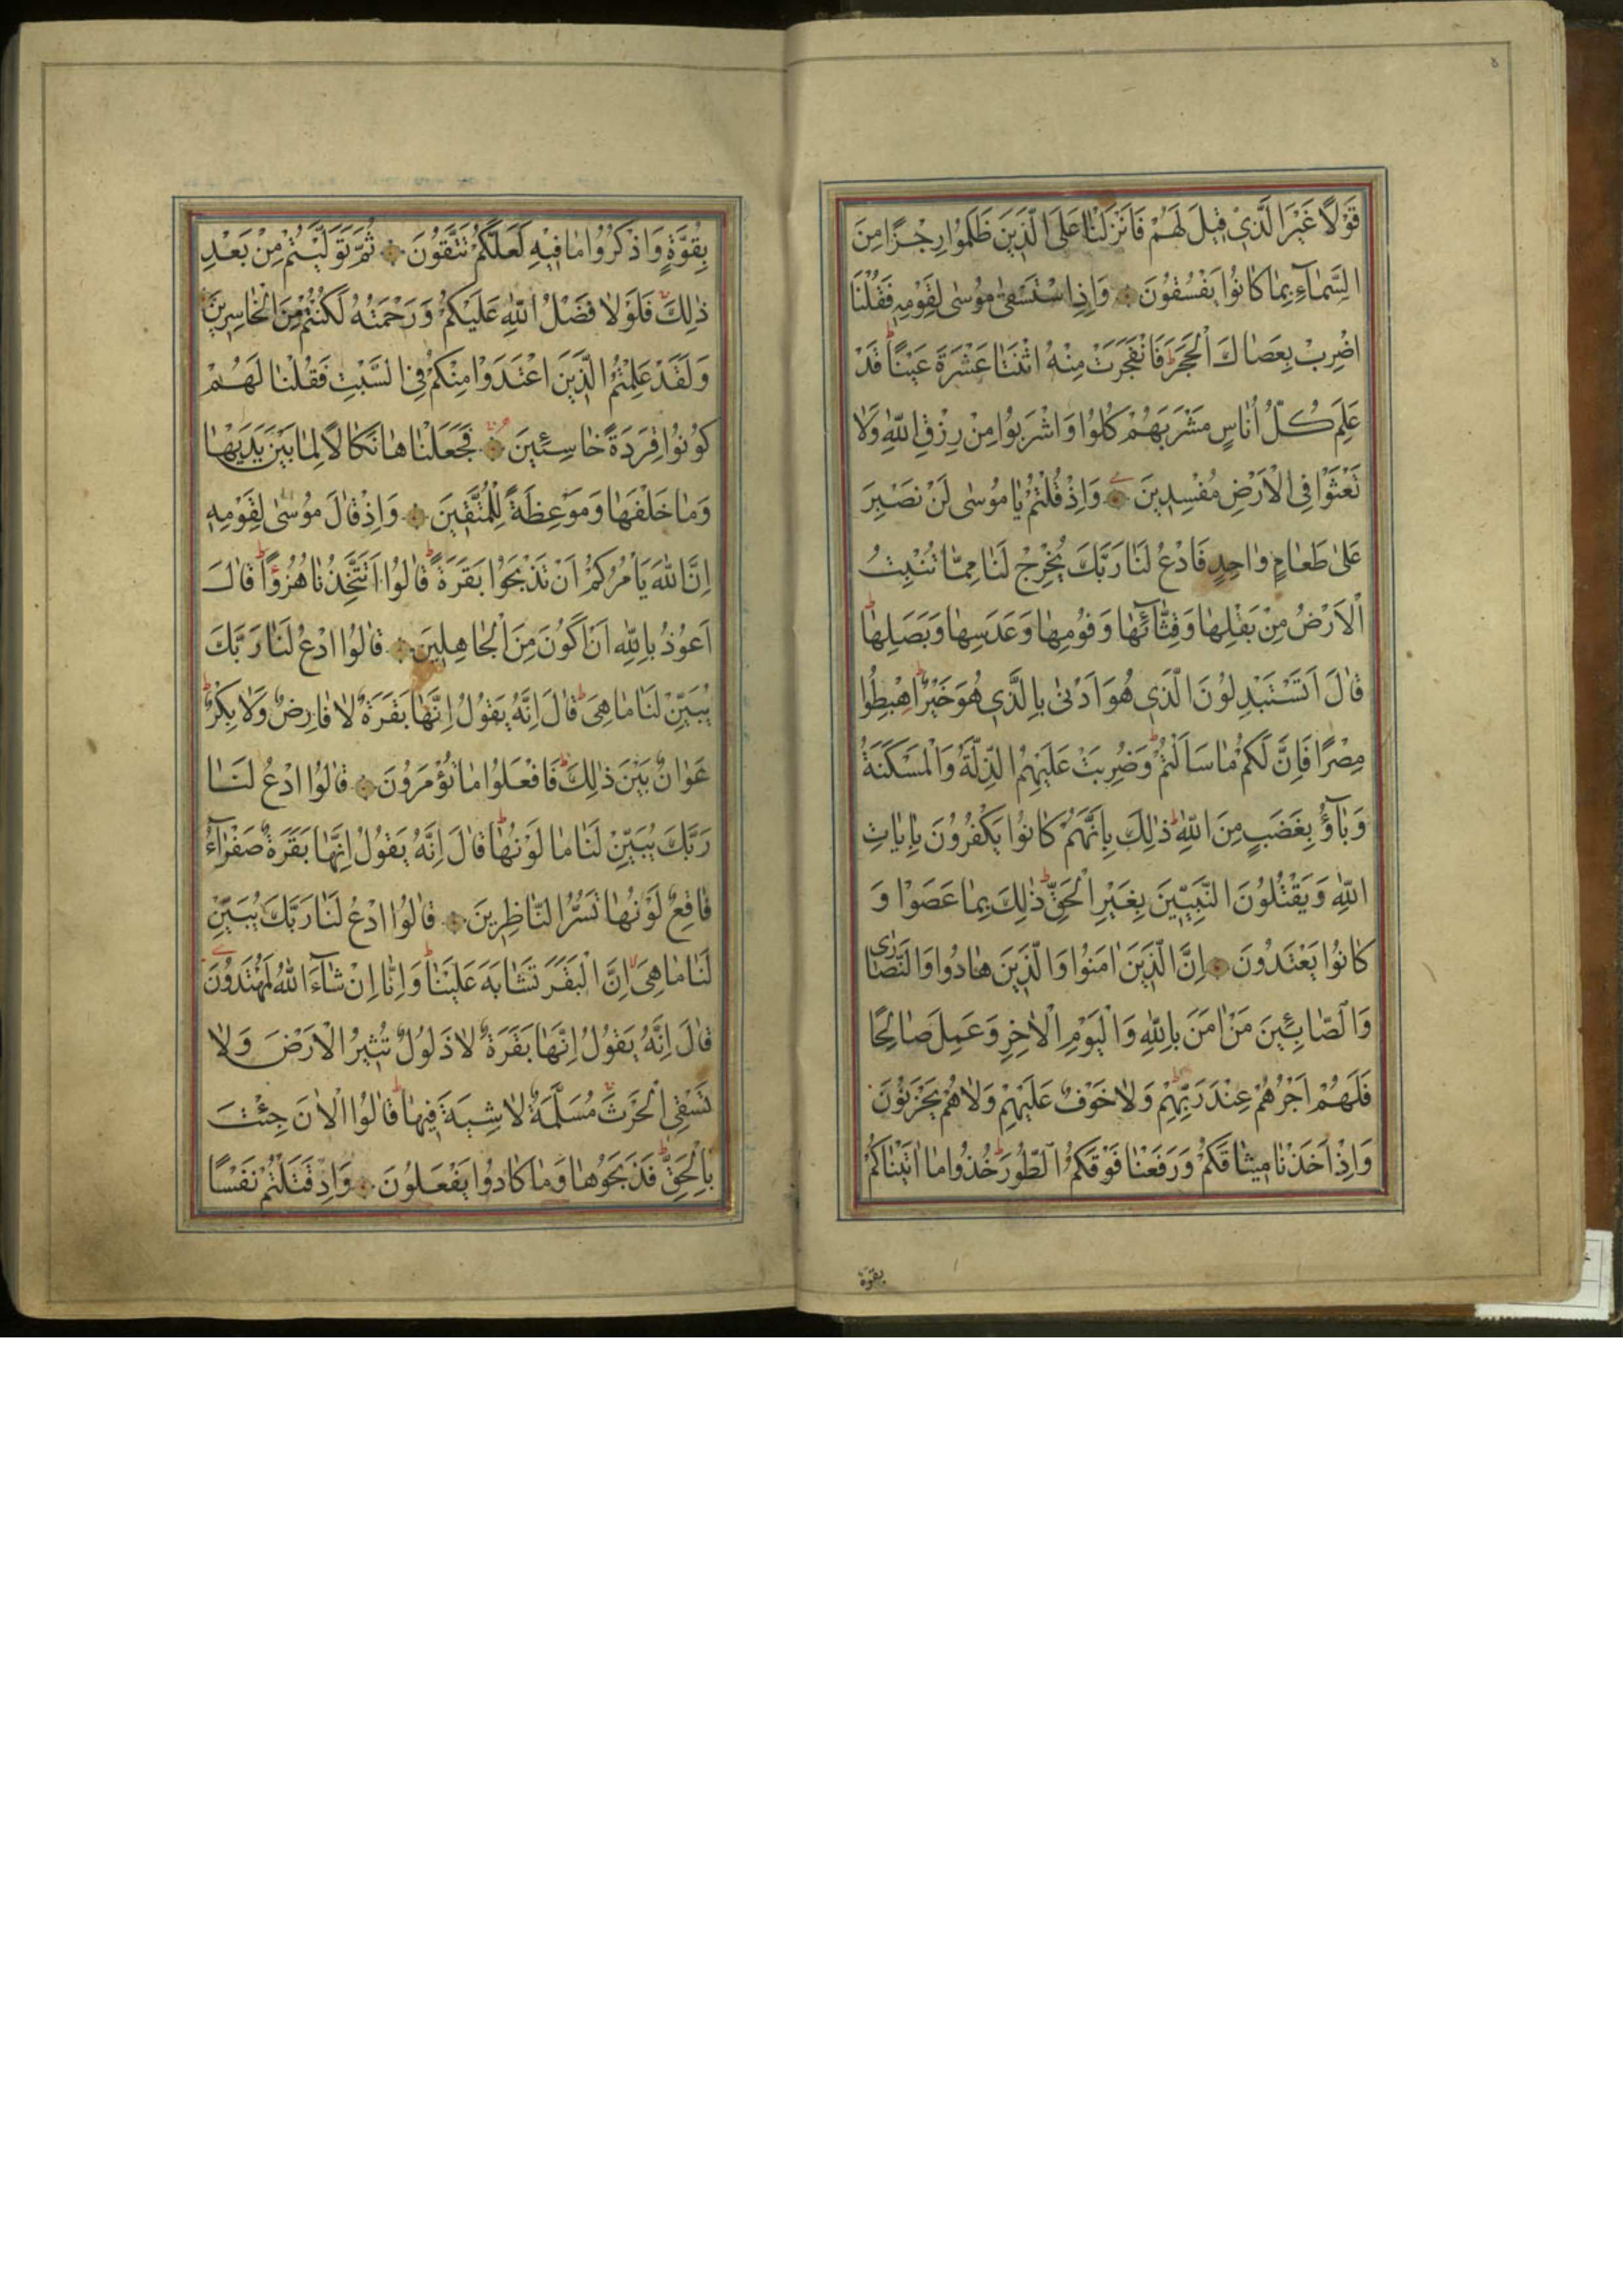 ٨
قَوْلًا غَيْرَ الَّذِي قِيلَ لَهُمْ فَاَنْزَلْنَا عَلَى الَّذِينَ ظَلَمُوا رِجْزًا مِنَ
السَّمَآءِ بِمَا كَانُوا يَفْسُقُونَ وَاِذِ اسْتَسْقٰى مُوسٰى لِقَوْمِهِ فَقُلْنَا
اضْرِبْ بِعَصَاكَ الْحَجَرَ ط فَانْفَجَرَتْ مِنْهُ اثْنَتَا عَشْرَةَ عَيْنًا ط قَدْ
عَلِمَ كُلُّ اُنَاسٍ مَشْرَبَهُمْ كُلُوا وَاشْرَبُوا مِنْ رِزْقِ اللّٰهِ وَلَا
تَعْثَوْا فِى الْاَرْضِ مُفْسِدِينَ وَاِذْ قُلْتُمْ يَا مُوسٰى لَنْ نَصْبِرَ
عَلٰى طَعَامٍ وَاحِدٍ فَادْعُ لَنَا رَبَّكَ يُخْرِجْ لَنَا مِمَّا تُنْبِتُ
الْاَرْضُ مِنْ بَقْلِهَا وَقِثَّآئِهَا وَفُومِهَا وَعَدَسِهَا وَبَصَلِهَا ط
قَالَ اَتَسْتَبْدِلُونَ الَّذِي هُوَ اَدْنٰى بِالَّذِي هُوَ خَيْرٌ ط اِهْبِطُوا
مِصْرًا فَاِنَّ لَكُمْ مَا سَاَلْتُمْ ط وَضُرِبَتْ عَلَيْهِمُ الذِّلَّةُ وَالْمَسْكَنَةُ
وَبَآؤُ بِغَضَبٍ مِنَ اللّٰهِ ط ذٰلِكَ بِاَنَّهُمْ كَانُوا يَكْفُرُونَ بِاٰيَاتِ
اللّٰهِ وَيَقْتُلُونَ النَّبِيِّينَ بِغَيْرِ الْحَقِّ ط ذٰلِكَ بِمَا عَصَوْا وَ
كَانُوا يَعْتَدُونَ اِنَّ الَّذِينَ اٰمَنُوا وَالَّذِينَ هَادُوا وَالنَّصَارٰى
وَالصَّابِئِينَ مَنْ اٰمَنَ بِاللّٰهِ وَالْيَوْمِ الْاٰخِرِ وَعَمِلَ صَالِحًا
فَلَهُمْ اَجْرُهُمْ عِنْدَ رَبِّهِمْ وَلَا خَوْفٌ عَلَيْهِمْ وَلَا هُمْ يَحْزَنُونَ
وَاِذْ اَخَذْنَا مِيثَاقَكُمْ وَرَفَعْنَا فَوْقَكُمُ الطُّورَ ط خُذُوا مَا اٰتَيْنَاكُمْ
بقوة
بِقُوَّةٍ وَاذْكُرُوا مَا فِيهِ لَعَلَّكُمْ تَتَّقُونَ ثُمَّ تَوَلَّيْتُمْ مِنْ بَعْدِ
ذٰلِكَ فَلَوْلَا فَضْلُ اللّٰهِ عَلَيْكُمْ وَرَحْمَتُهُ لَكُنْتُمْ مِنَ الْخَاسِرِينَ
وَلَقَدْ عَلِمْتُمُ الَّذِينَ اعْتَدَوْا مِنْكُمْ فِى السَّبْتِ فَقُلْنَا لَهُمْ
كُونُوا قِرَدَةً خَاسِئِينَ فَجَعَلْنَاهَا نَكَالًا لِمَا بَيْنَ يَدَيْهَا
وَمَا خَلْفَهَا وَمَوْعِظَةً لِلْمُتَّقِينَ وَاِذْ قَالَ مُوسٰى لِقَوْمِهِ
اِنَّ اللّٰهَ يَاْمُرُكُمْ اَنْ تَذْبَحُوا بَقَرَةً ط قَالُوا اَتَتَّخِذُنَا هُزُوًا ط قَالَ
اَعُوذُ بِاللّٰهِ اَنْ اَكُونَ مِنَ الْجَاهِلِينَ قَالُوا ادْعُ لَنَا رَبَّكَ
يُبَيِّنْ لَنَا مَا هِىَ ط قَالَ اِنَّهُ يَقُولُ اِنَّهَا بَقَرَةٌ لَا فَارِضٌ وَلَا بِكْرٌ ط
عَوَانٌ بَيْنَ ذٰلِكَ ط فَافْعَلُوا مَا تُؤْمَرُونَ قَالُوا ادْعُ لَنَا
رَبَّكَ يُبَيِّنْ لَنَا مَا لَوْنُهَا ط قَالَ اِنَّهُ يَقُولُ اِنَّهَا بَقَرَةٌ صَفْرَآءُ
فَاقِعٌ لَوْنُهَا تَسُرُّ النَّاظِرِينَ قَالُوا ادْعُ لَنَا رَبَّكَ يُبَيِّنْ
لَنَا مَا هِىَ اِنَّ الْبَقَرَ تَشَابَهَ عَلَيْنَا ط وَاِنَّا اِنْ شَآءَ اللّٰهُ لَمُهْتَدُونَ
قَالَ اِنَّهُ يَقُولُ اِنَّهَا بَقَرَةٌ لَا ذَلُولٌ تُثِيرُ الْاَرْضَ وَلَا
تَسْقِى الْحَرْثَ مُسَلَّمَةٌ لَا شِيَةَ فِيهَا ط قَالُوا الْاٰنَ جِئْتَ
بِالْحَقِّ ط فَذَبَحُوهَا وَمَا كَادُوا يَفْعَلُونَ وَاِذْ قَتَلْتُمْ نَفْسًا